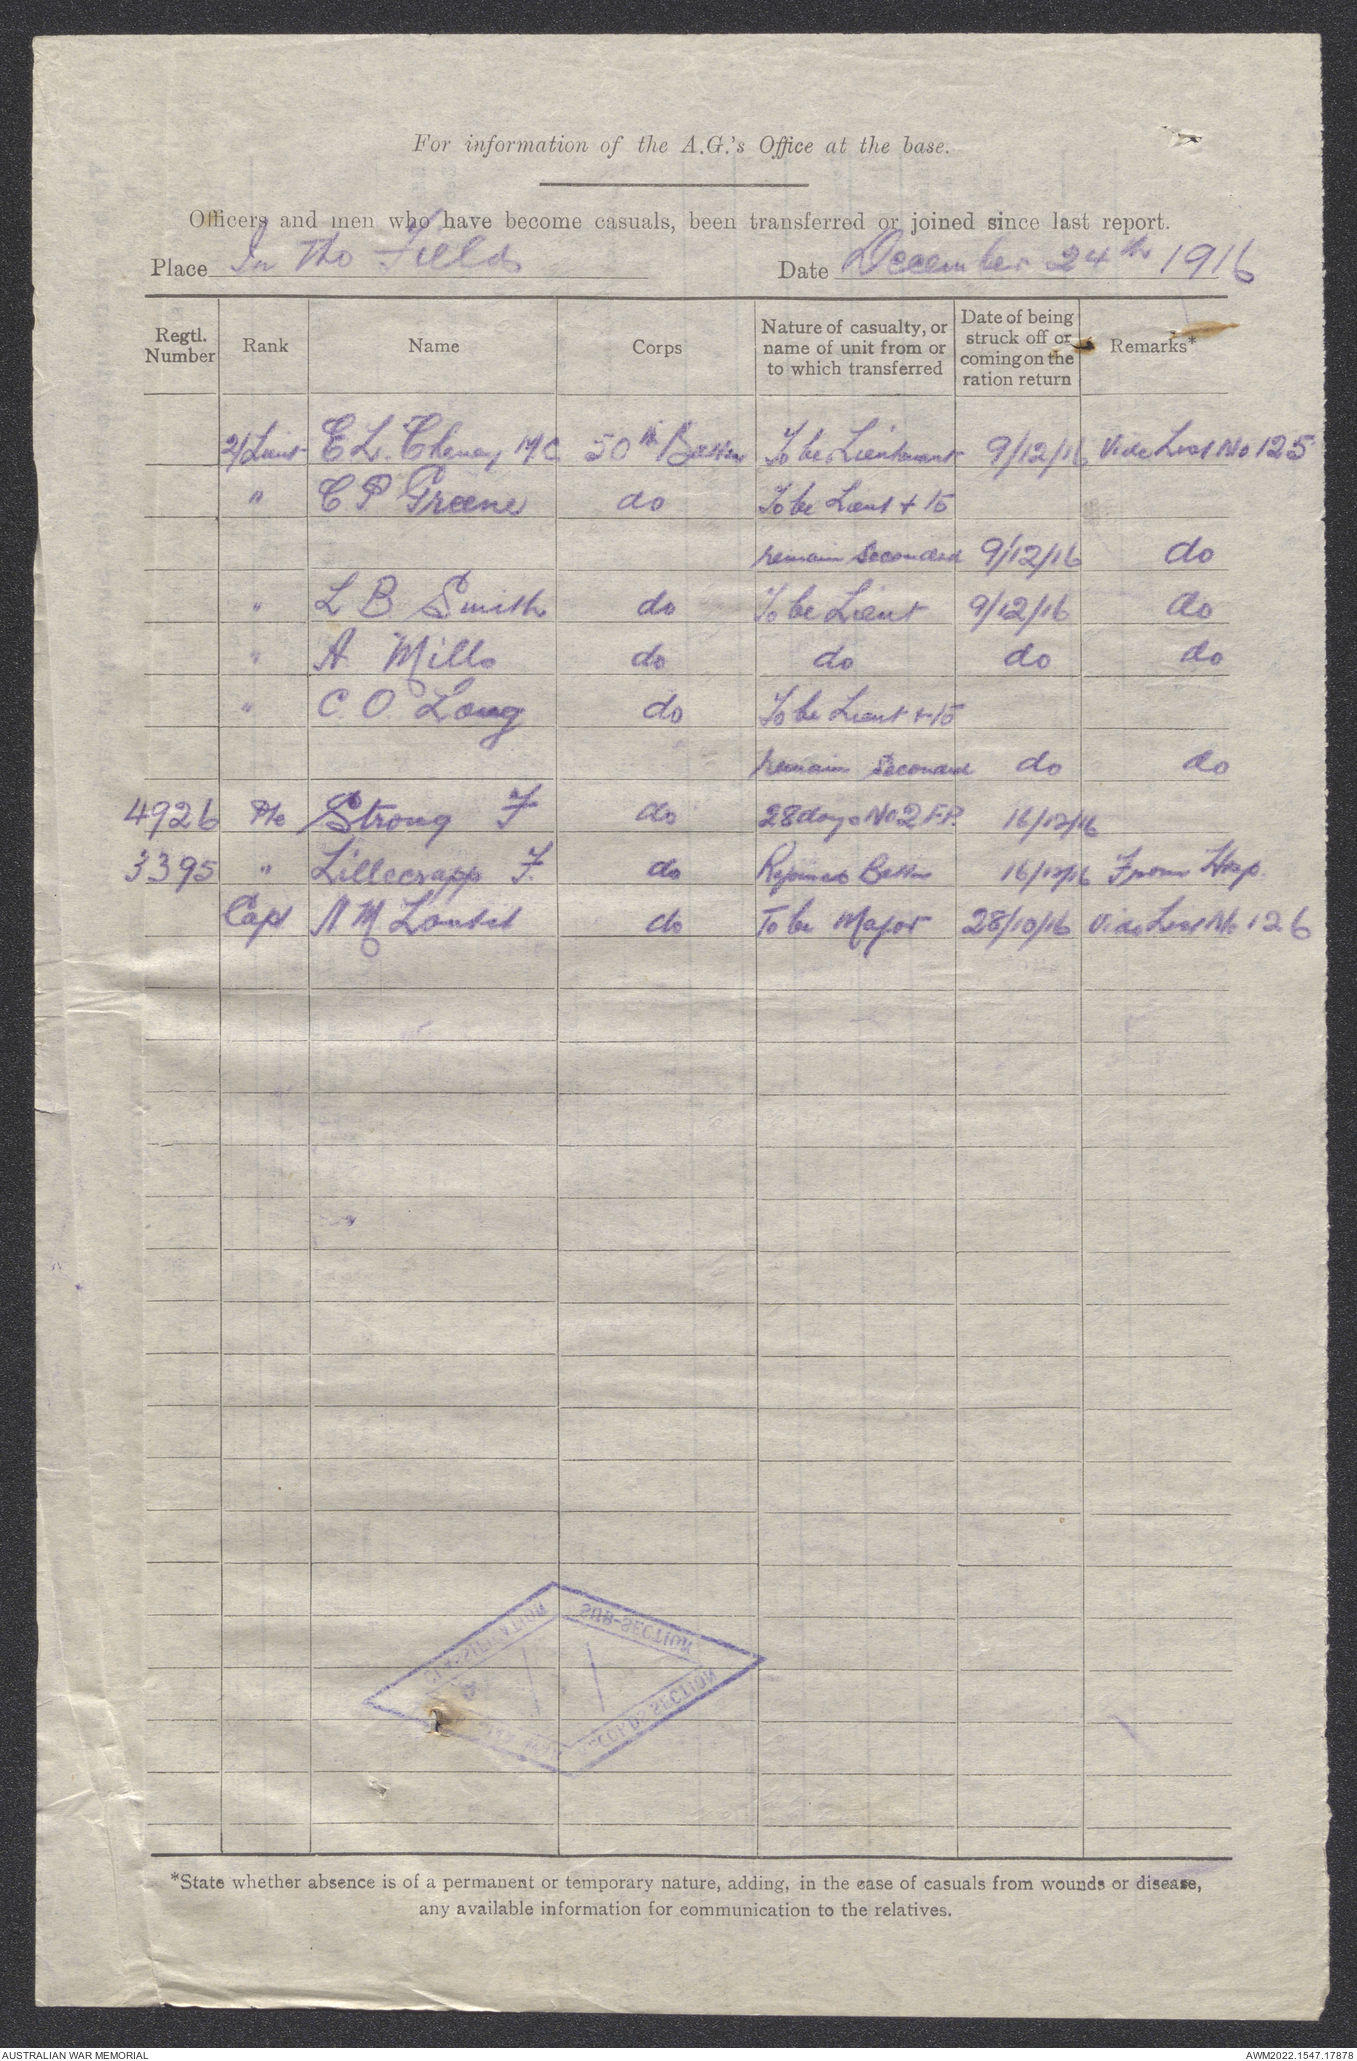 For information of the A.G.'s Office at the base.
Officers and men who have become casuals, been transferred or joined since last report.
Place In the Field Date December 24th 1916
Regtl. Number Rank Name Corps Nature of casualty, or name of unit from or to which transferred Date of being struck off or coming on the ration return Remarks*
2/Lieut E L. Cheney MC 50th Battn To be Lieutenant 9/12/16 Vide List No 125
" C P Greene do To be Lieut + to
remain seconded 9/12/16 do
" L B Smith do To be Lieut 9/12/16 do
" A. Mills do do do do
" C. O Long do To be Lieut + to
remain seconded do do
4926 Pte Strong F do 28 days No 2 F.P. 16/12/16
3395 " Lillecrapp F. do Rejoined Battn 16/12/16 From Hosp.
Capt N M Loutit do To be Major 28/10/16 Vide List No 126
CLASSIFICATION SUB-SECTION
RECORDS SECTION
*State whether absence is of a permanent or temporary nature, adding, in the case of casuals from wounds or disease,
any available information for communication to the relatives.
AUSTRALIAN WAR MEMORIAL AWM2022.1547.17878